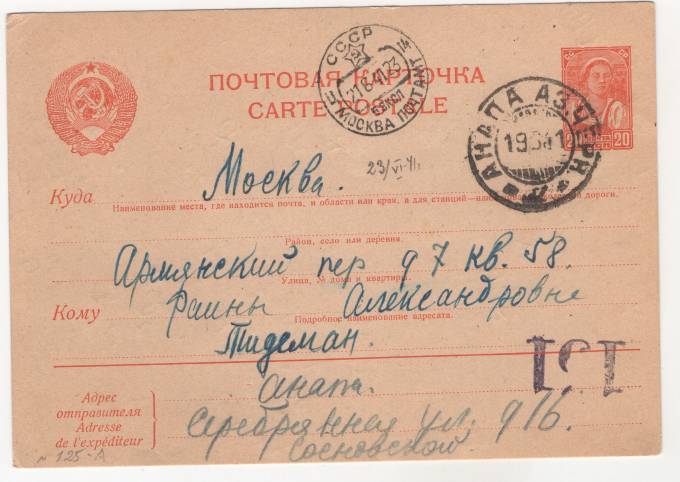 СССР
21.6.41.23
МОСКВА ПОЧТАМТ
ПОЧТОВАЯ КАРТОЧКА
CARTE POSTALE
АНАПА АЗ.ЧЕРН
20
23/VI 41.
Куда Москва.
Наименование места, где находится почта, и области или края, а для станций— дороги.
Район, село или деревня
Армянский пер д 7 кв. 58.
Улица, № дома и квартиры
Кому Раины Александровне
Подробное наименование адресата.
Тидеман.
151
Адрес
отправителя
Adresse
de l'expéditeur
Анапа.
Серебряная ул. д 16.
Сосновской.
№ 125-А